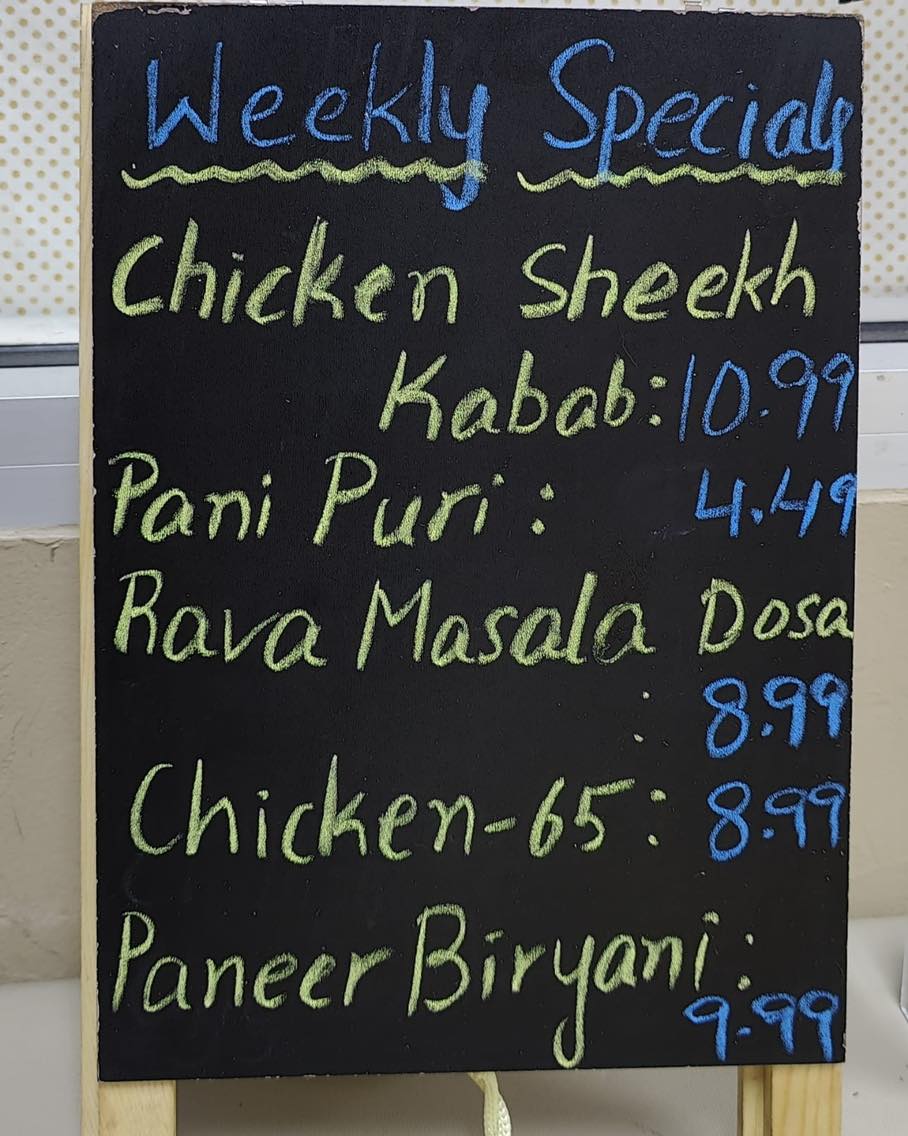 Weekly Specials
Chicken Sheekh
Kabab: 10.99
Pani Puri: 4.49
Rava Masala Dosa
: 8.99
Chicken-65: 8.99
Paneer Biryani:
9.99